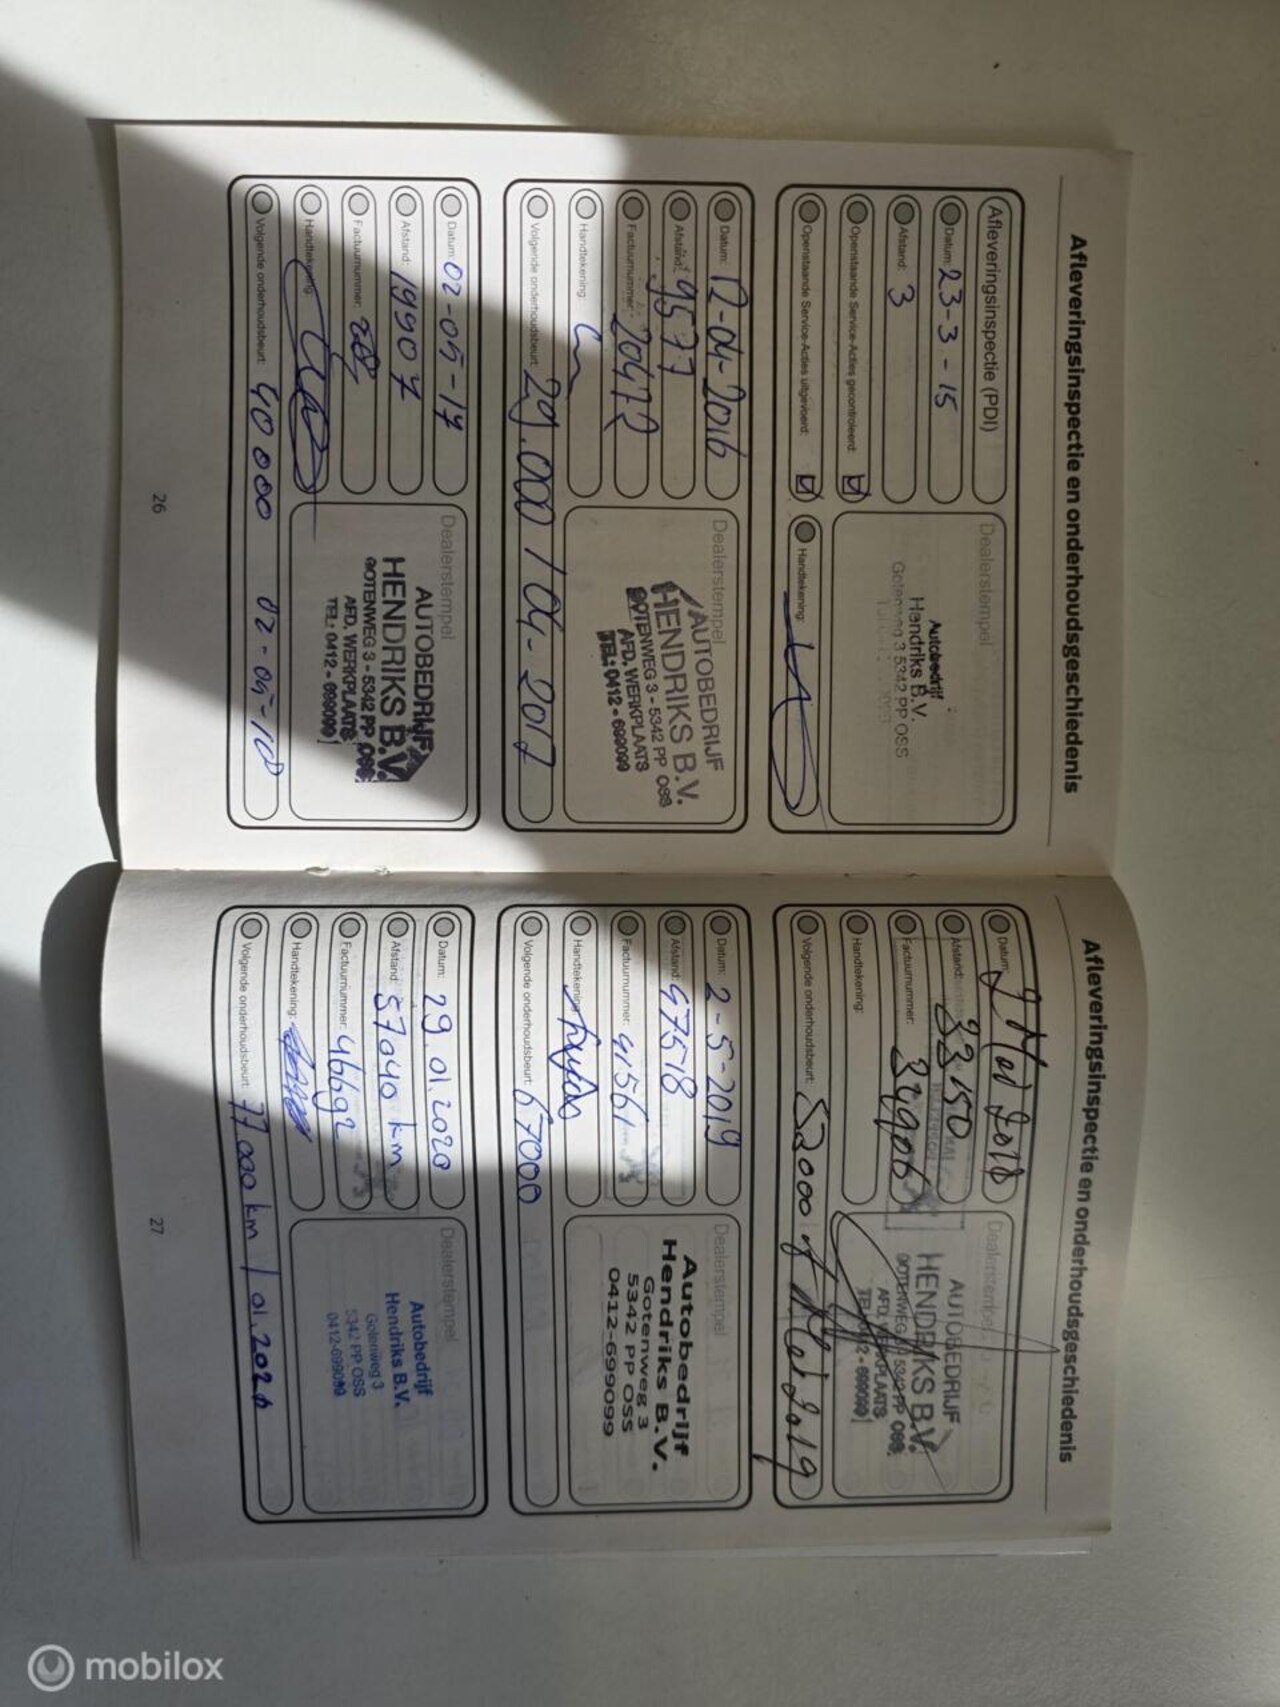 Afleveringsinspectie en onderhoudsgeschiedenis
Afleveringsinspectie (PDI)
Datum: 23-3-15
Afstand: 3
Openstaande Service-Acties gecontroleerd:
Openstaande Service-Acties uitgevoerd:
Dealerstempel
Autobedrijf
Hendriks B.V.
Gotenweg 3 5342 PP OSS
Handtekening:
Datum: 12-04-2016
Afstand: 9577
Factuurnummer: 20472
Handtekening:
Volgende onderhoudsbeurt: 29.000 / 04-2017
Dealerstempel
AUTOBEDRIJF
HENDRIKS B.V.
GOTENWEG 3 - 5342 PP OSS
AFD. WERKPLAATS
TEL: 0412 - 699099
Datum: 02-05-17
Afstand: 19907
Factuurnummer:
Handtekening:
Volgende onderhoudsbeurt: 40000 02-05-18
Dealerstempel
AUTOBEDRIJF
HENDRIKS B.V.
GOTENWEG 3 - 5342 PP OSS
AFD. WERKPLAATS
TEL: 0412 - 699099
26
Afleveringsinspectie en onderhoudsgeschiedenis
Datum: 2 Mei 2018
Afstand: 33150
Factuurnummer: 34906
Handtekening:
Volgende onderhoudsbeurt: 52000 of Mei 2019
Dealerstempel
AUTOBEDRIJF
HENDRIKS B.V.
GOTENWEG 3 - 5342 PP OSS
AFD. WERKPLAATS
TEL: 0412 - 699099
Datum: 2-5-2019
Afstand: 47518
Factuurnummer: 41561
Handtekening:
Volgende onderhoudsbeurt: 67000
Dealerstempel
Autobedrijf
Hendriks B.V.
Gotenweg 3
5342 PP OSS
0412-699099
Datum: 29.01.2020
Afstand: 57040 km
Factuurnummer: 46692
Handtekening:
Volgende onderhoudsbeurt: 77.000 km / 01.2021
Dealerstempel
Autobedrijf
Hendriks B.V.
Gotenweg 3
5342 PP OSS
0412-699099
27
mobilox